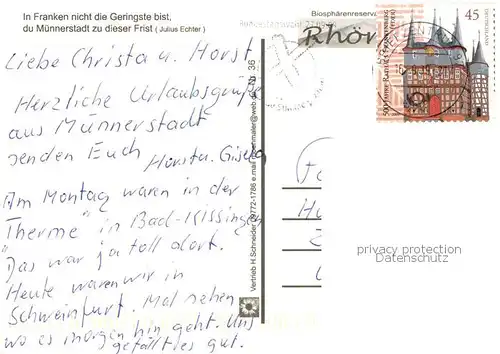 In Franken nicht die Geringste bist,
du Münnerstadt zu dieser Frist ( Julius Echter )
Liebe Christa u. Horst
Herzliche Urlaubsgrüße
aus Münnerstadt
senden Euch Horst u. Gisela
Am Montag waren in der
"Therme" in Bad-Kissingen
Das war ja toll dort.
Heute waren wir in
Schweinfurt. Mal sehen
wo es morgen hin geht. Uns
gefällt es gut.
Vertrieb H Schneider 09772-1786 e.mail
Nr. 36
Biosphärenreserva
Rhön
500 Jahre Rathaus Frankenberg
(EDER)
45
DEUTSCHLAND
privacy protection
Datenschutz